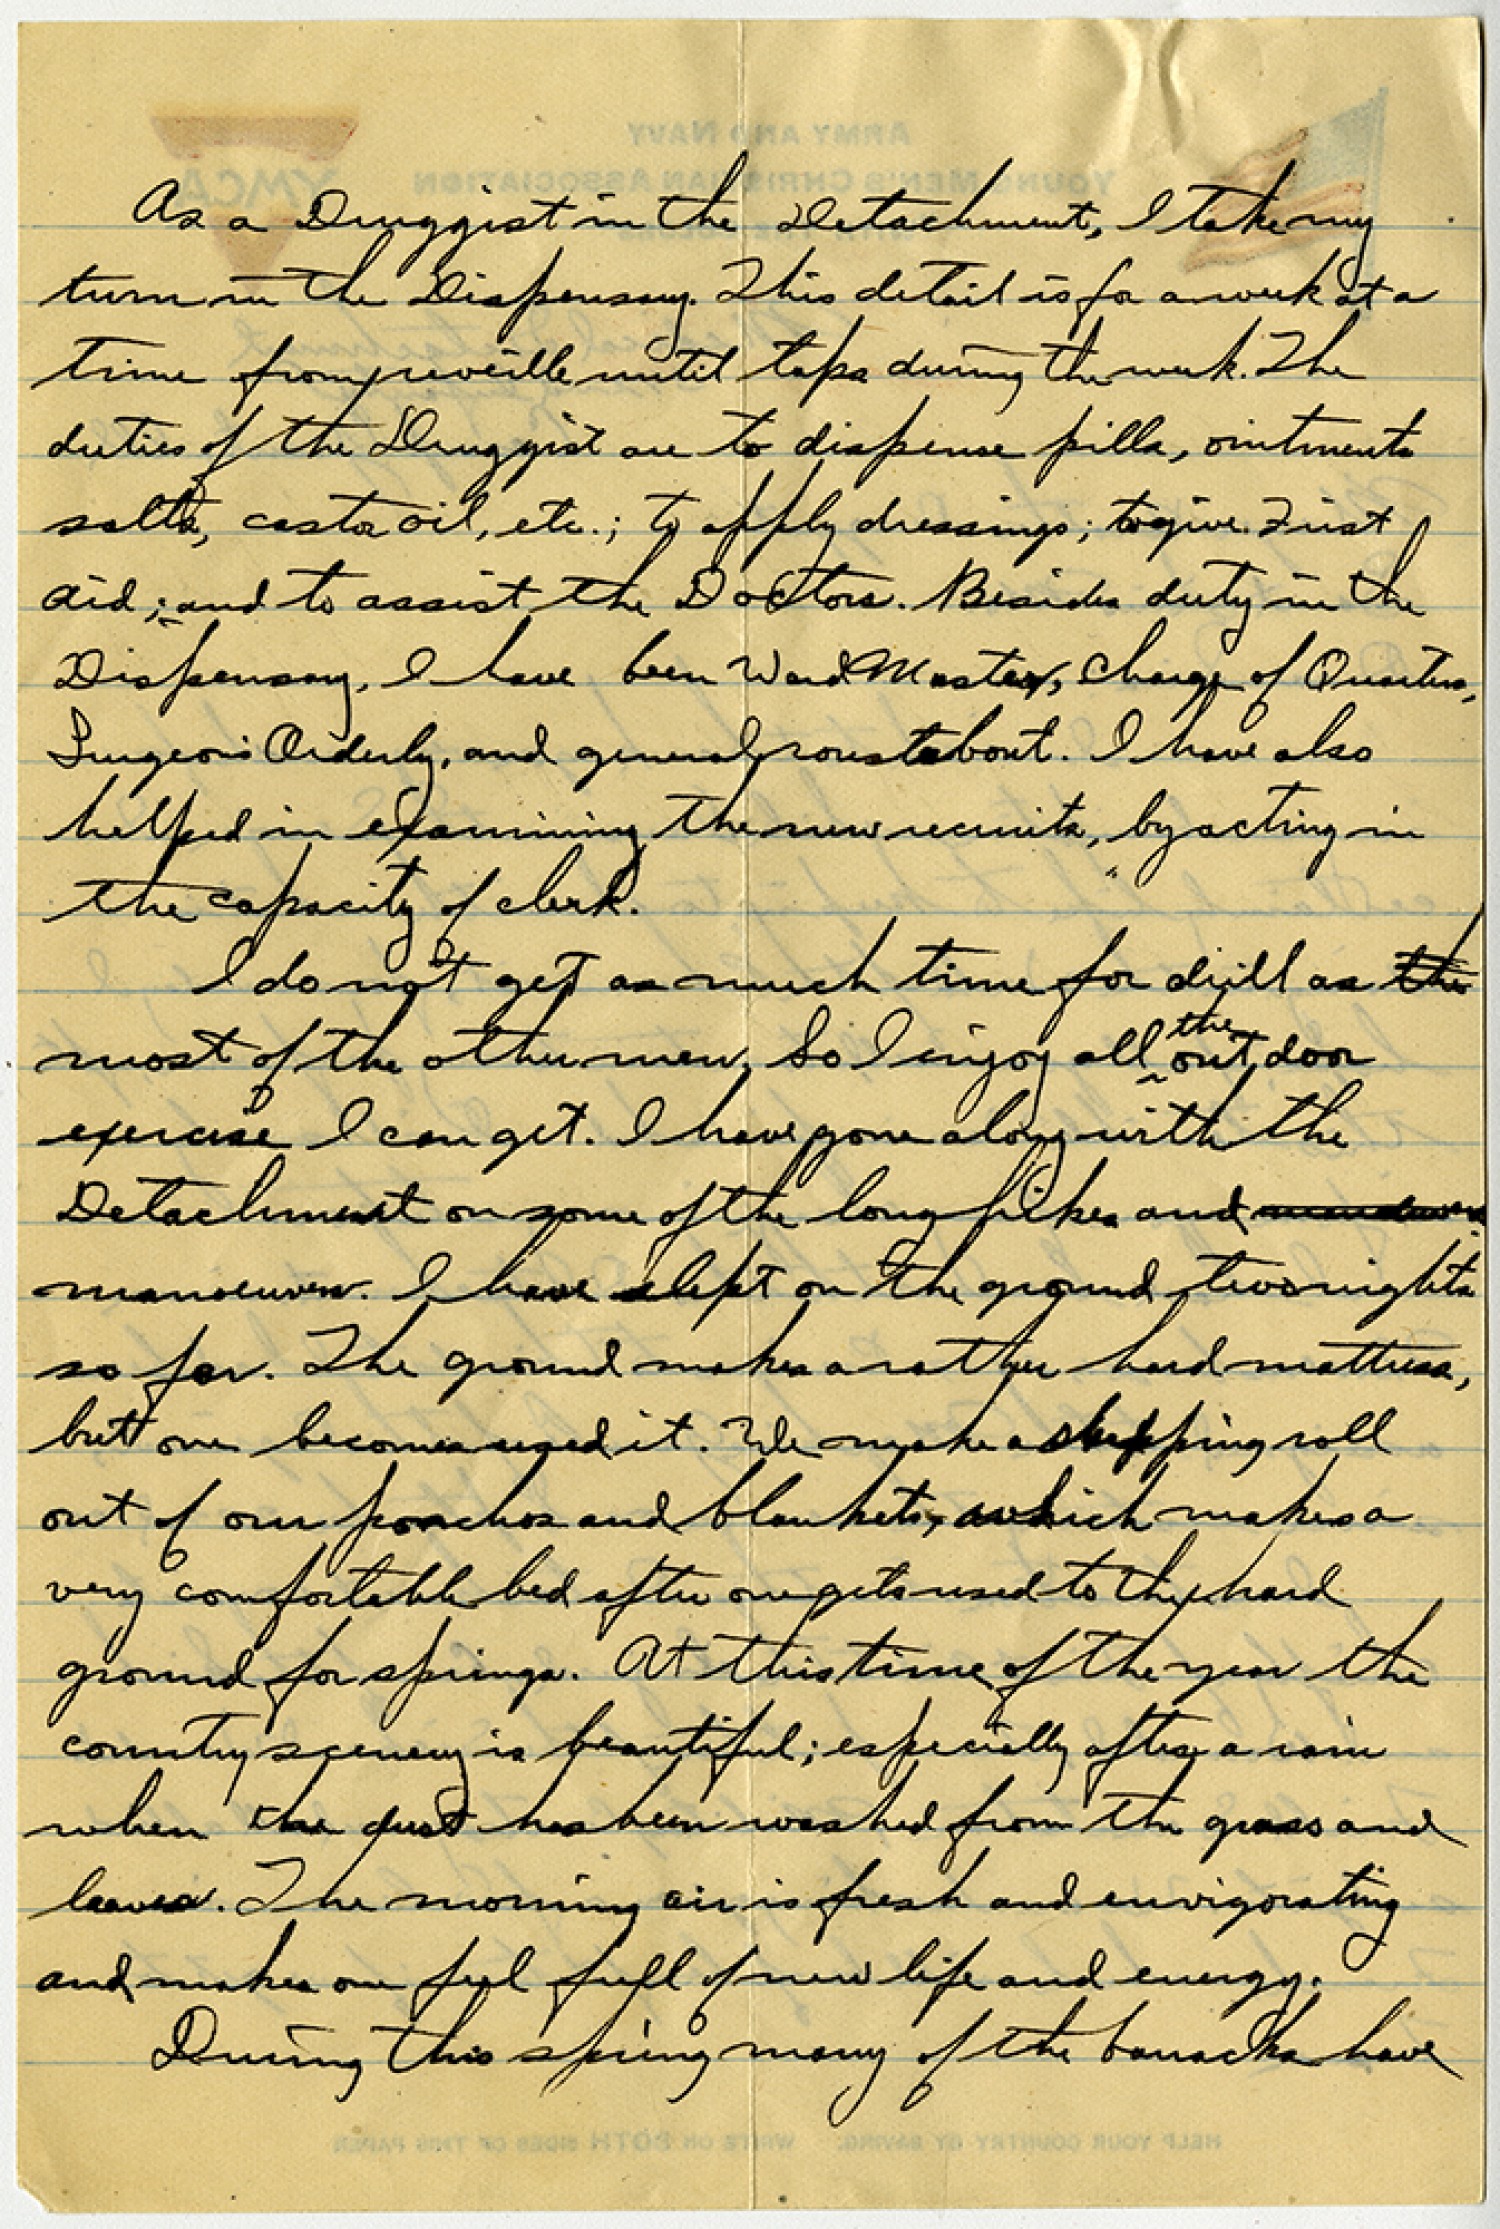 As a Druggist in the Detachment, I take my
turn in the Dispensary. This detail is for a week at a
time from reveille until taps during the week. The
duties of the Druggist are to dispense pills, ointments
salts, castor oil, etc.; to apply dressings; to give First
Aid; and to assist the Doctors. Besides duty in the
Dispensary, I have been Ward Master, Charge of Quarters,
Surgeon's Orderly, and general roustabout. I have also
helped in examining the new recruits, by acting in
the capacity of clerk.
I do not get as much time for drill as the
most of the other men, so I enjoy all the out door
exercise I can get. I have gone along with the
Detachment on some of the long hikes and
manoeuvers. I have slept on the ground two nights
so far. The ground makes a rather hard mattress,
but one becomes used it. We make a sleeping roll
out of our ponchos and blankets, which makes a
very comfortable bed after one gets used to the hard
ground for springs. At this time of the year the
country scenery is beautiful; especially after a rain
when the dust has been washed from the grass and
leaves. The morning air is fresh and envigorating
and makes one feel full of new life and energy.
During this spring many of the barracks have